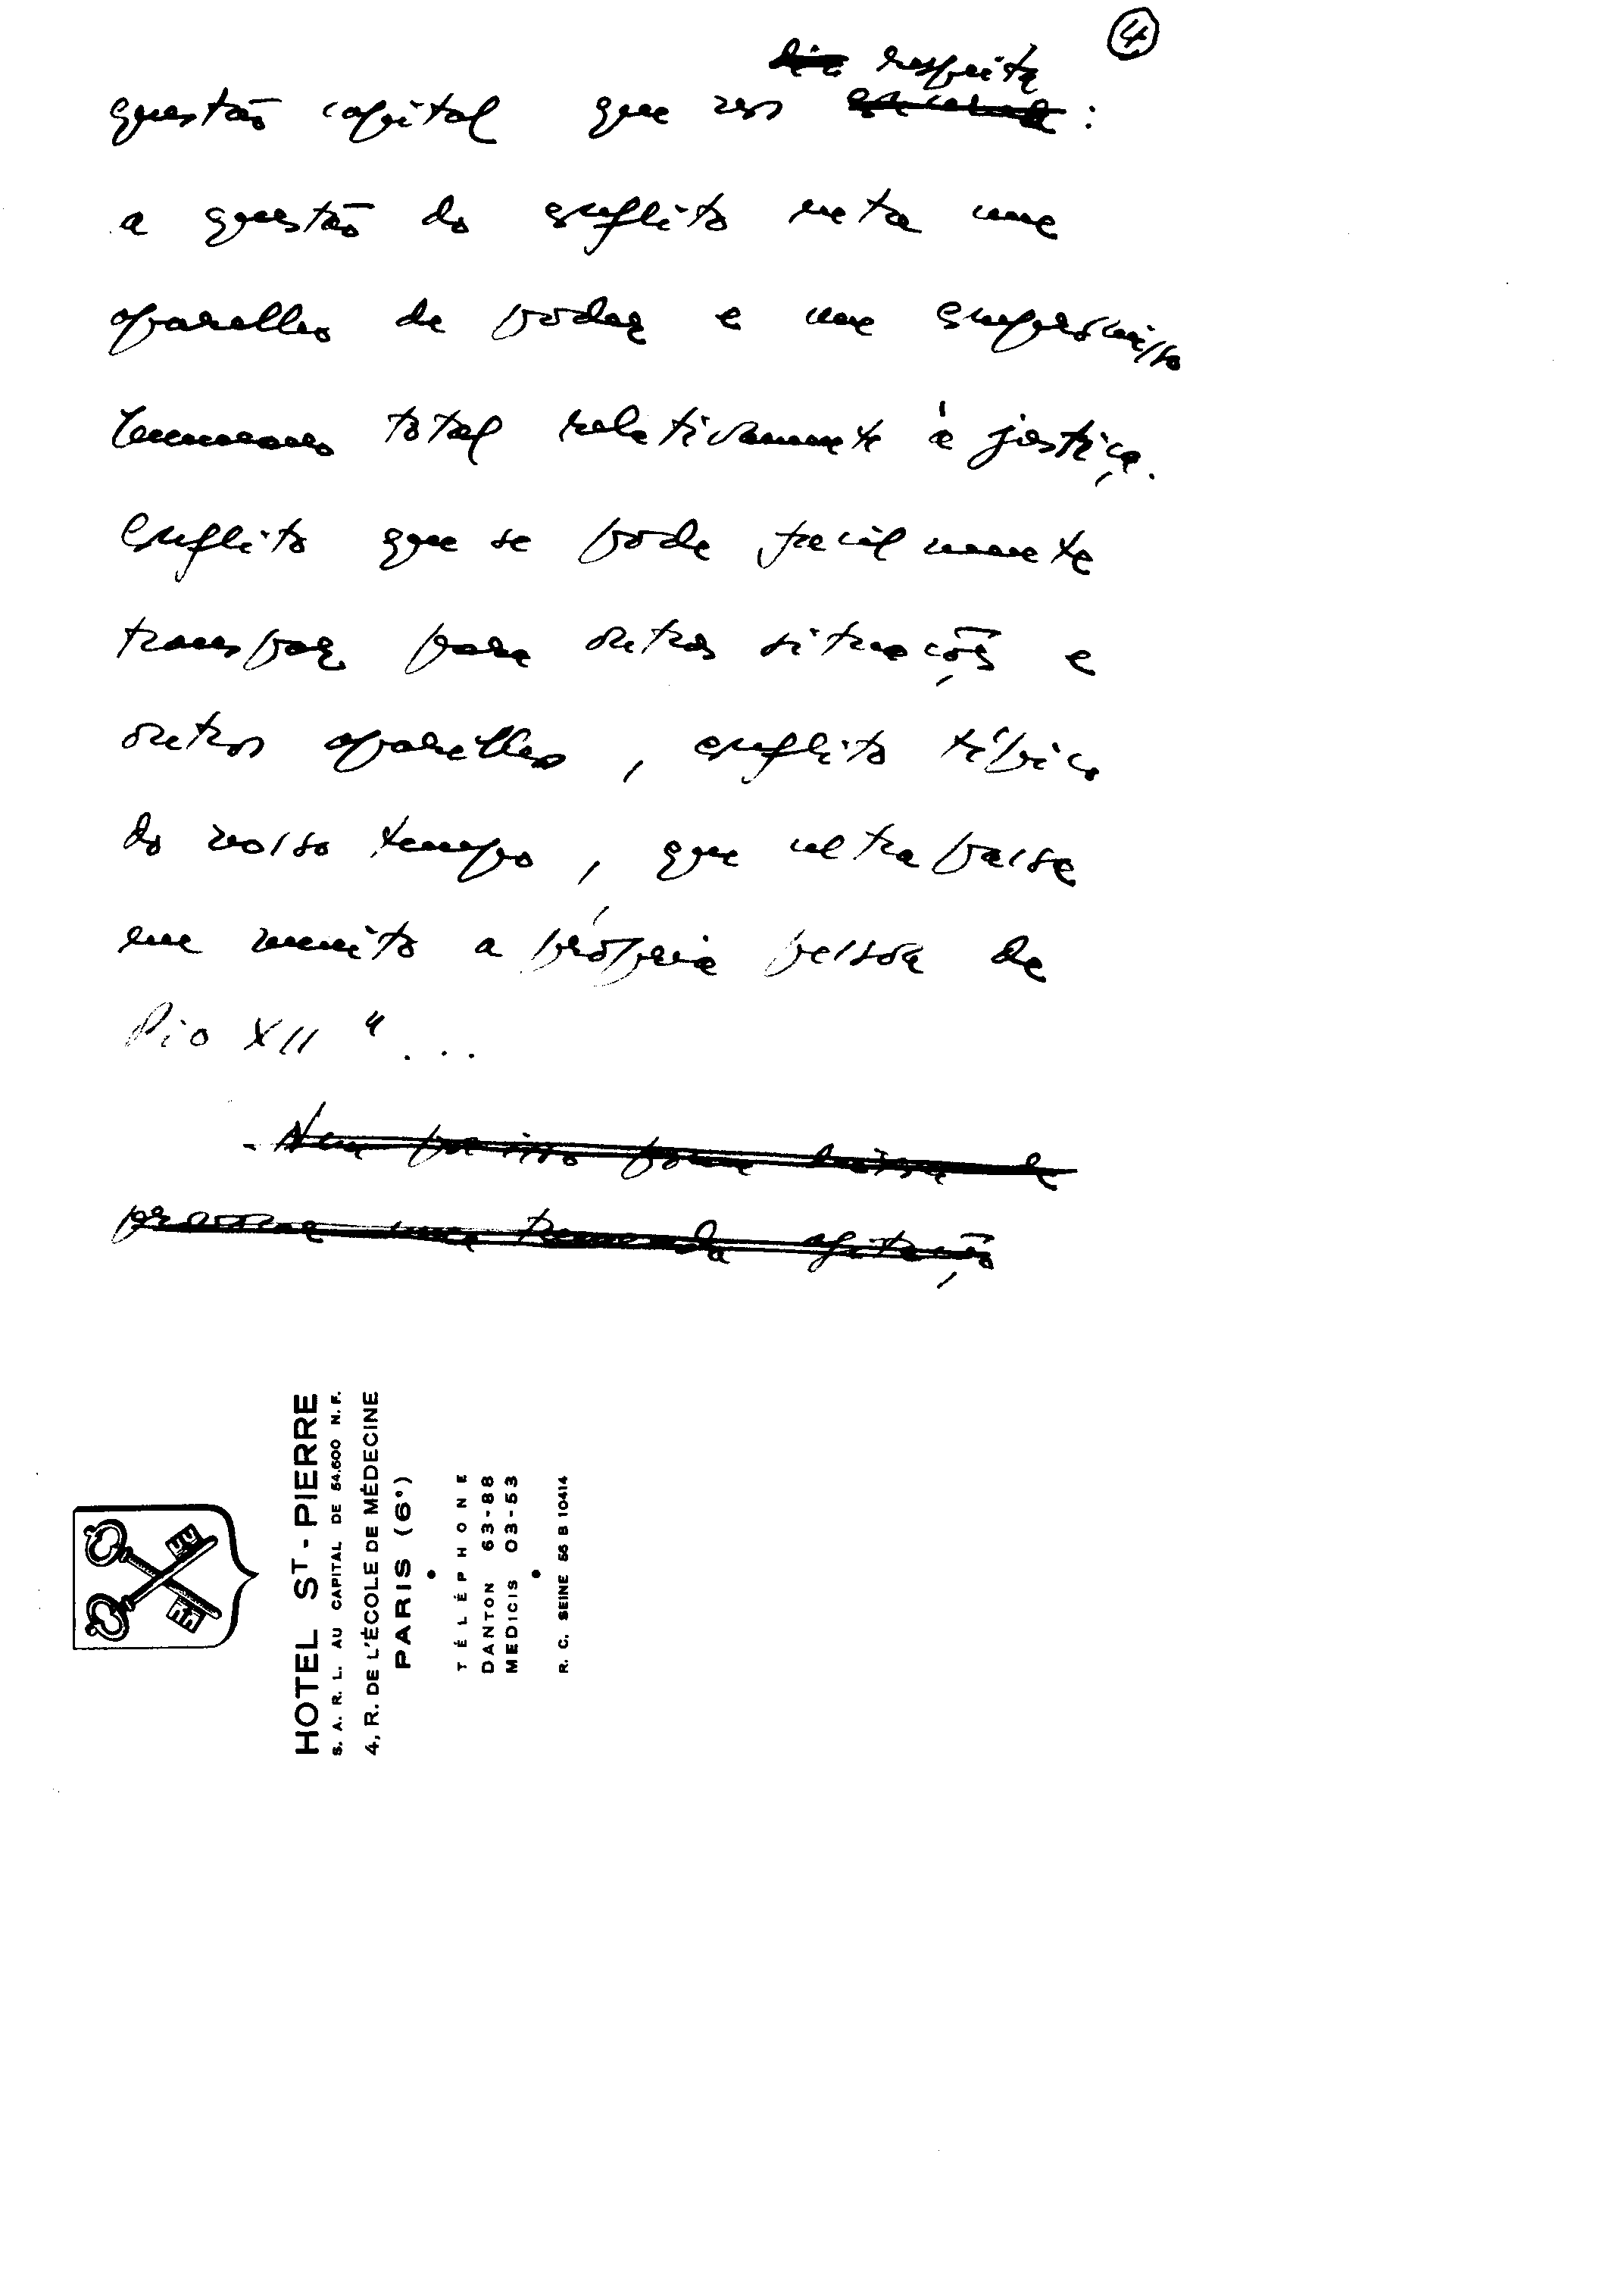 4
respeita
questão capital que nos :
a questão do conflito entre um
aparelho de poder e um compromisso
humano total relativamente à justiça.
Conflito que se pode facilmente
transpor para outras situações e
outros aparelhos, conflito típico
do nosso tempo, que ultrapassa
em muito a própria pessoa de
Pio XII "...
- Nem por isso
provocar uma tremenda agitação
HOTEL ST - PIERRE
S. A. R. L. AU CAPITAL DE 54.600 N. F.
4, R. DE L'ÉCOLE DE MÉDECINE
PARIS (6e)
TÉLÉPHONE
DANTON 63-88
MEDICIS 03-53
R. C. SEINE 56 B 10414